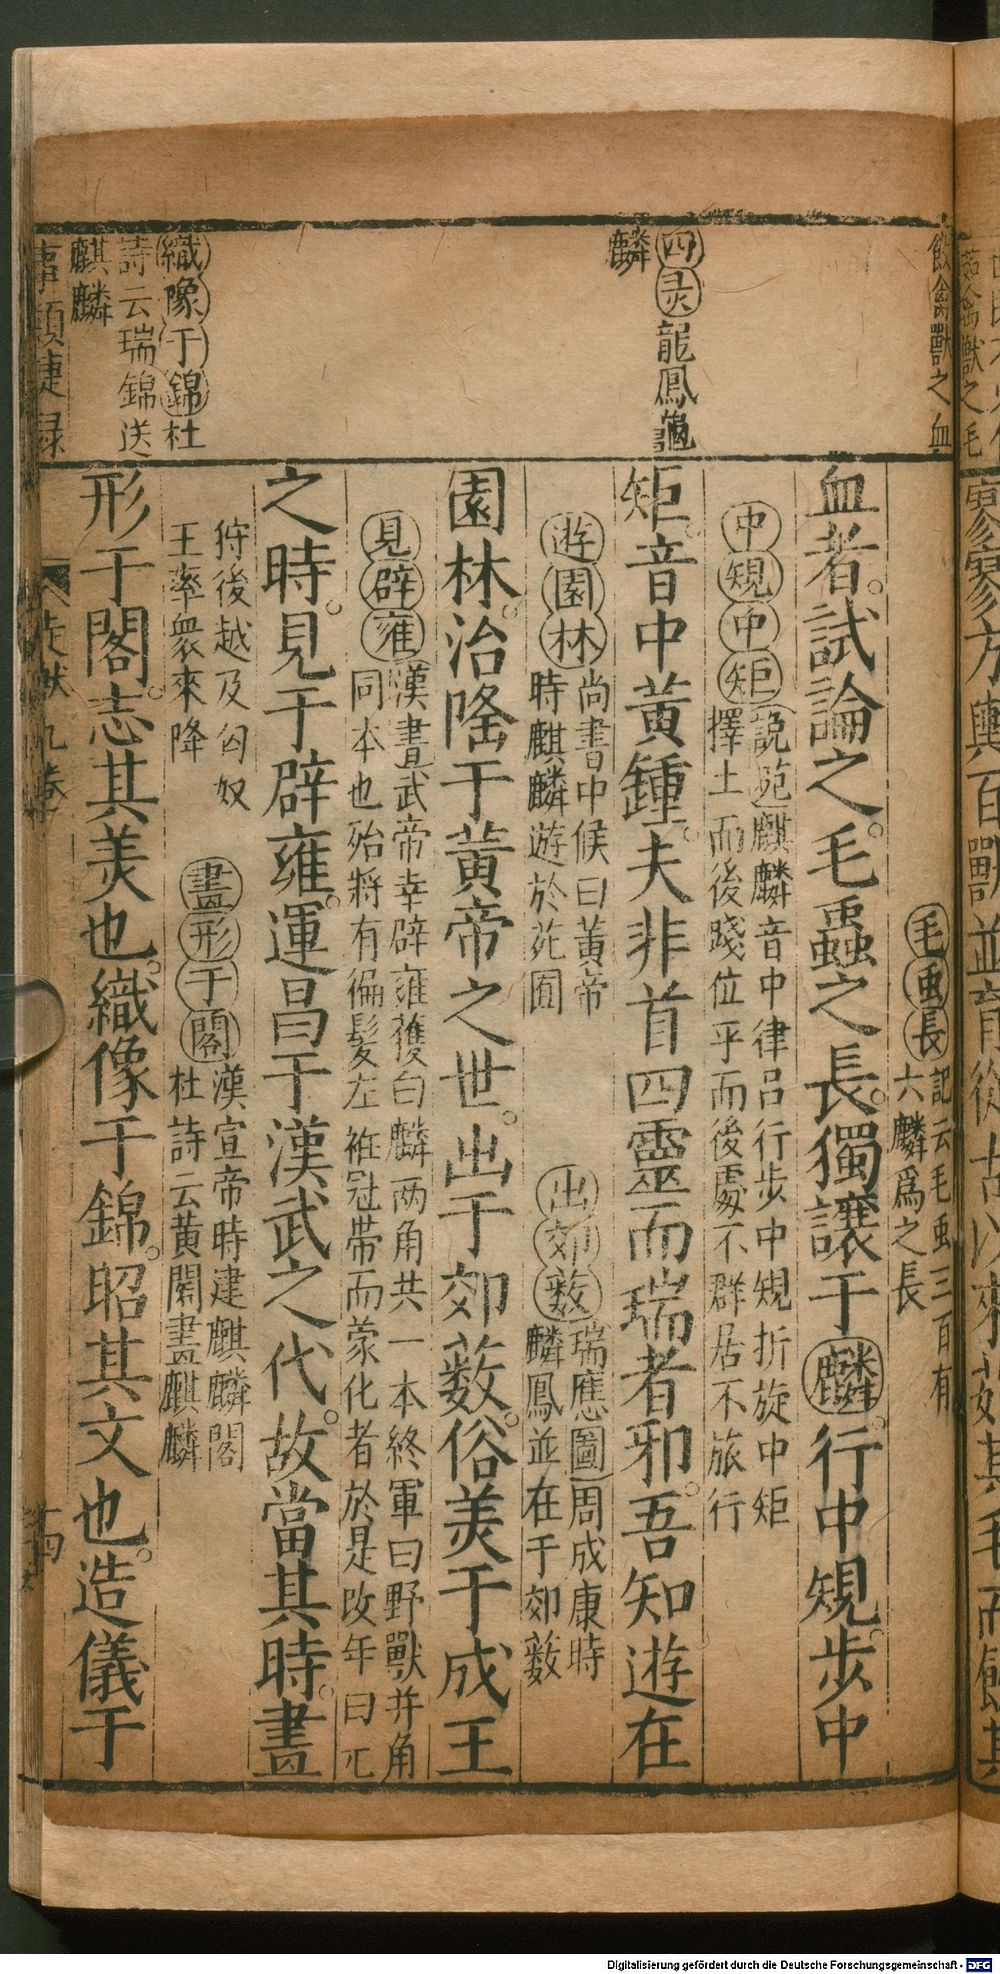 飲禽獸之血
四灵龍鳳龜
麟
織像于錦杜
詩云瑞錦送
麒麟
毛虫長記云毛虫三百有
六麟爲之長
血者試論之毛蟲之長獨讓于麟行中規步中
中規中矩說苑麒麟音中律呂行步中規折旋中矩
擇土而後踐位乎而後處不群居不旅行
矩音中黃鍾夫非首四靈而瑞者邪吾知遊在
遊園林尚書中候曰黃帝
時麒麟遊於苑囿
出郊薮瑞應圖周成康時
麟鳳並在于郊薮
園林治隆于黃帝之世出于郊薮俗美于成王
見辟雍漢書武帝幸辟雍獲白麟两角共一本終軍曰野獸并角
同本也殆將有徧髮左袵冠帶而蒙化者於是改年曰元
之時見于辟雍運昌于漢武之代故當其時畫
狩後越及匈奴
王率衆來降
畫形于閣漢宣帝時建麒麟閣
杜詩云黃閣畫麒麟
形于閣志其美也織像于錦昭其文也造儀于
事類捷録
走獸九卷
十四
Digitalisierung gefördert durch die Deutsche Forschungsgemeinschaft - DFG